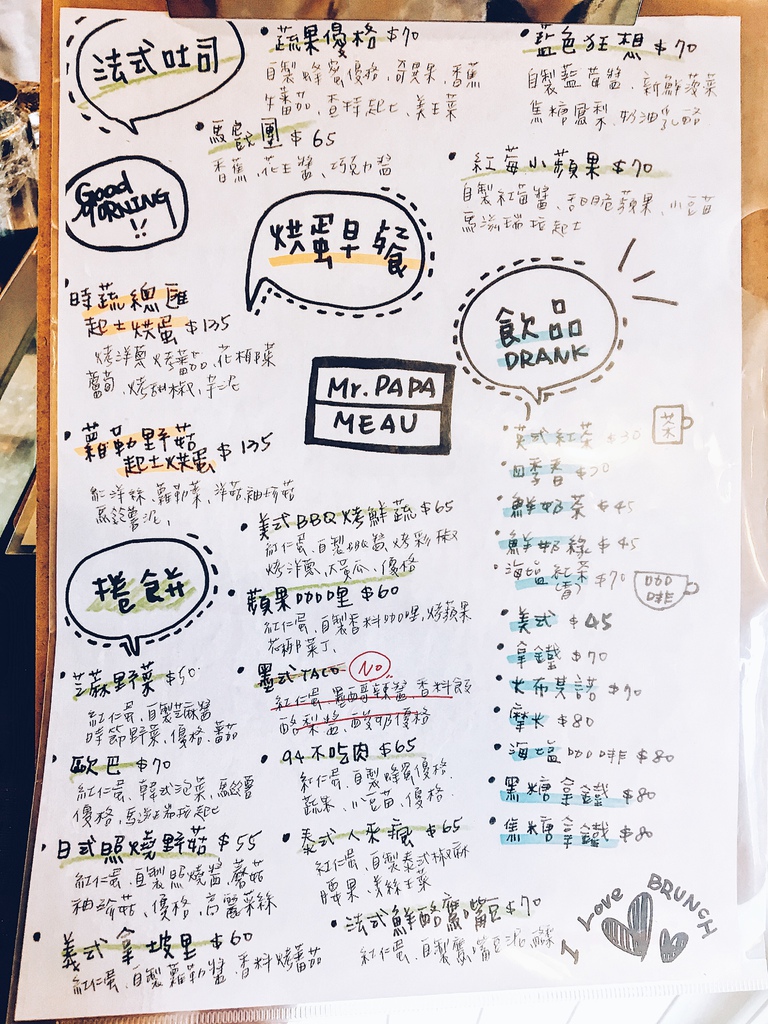 法式吐司
蔬果優格 $70
自製蜂蜜優格、奇異果、香蕉
牛蕃茄、查特起士、美生菜
馬戲團 $65
香蕉、花生醬、巧克力醬
藍色狂想 $70
自製藍莓醬、新鮮菠菜
焦糖鳳梨、奶油乳酪
紅莓小蘋果 $70
自製紅莓醬、甜脆蘋果、小豆苗
馬滋瑞拉起士
Good
MORNING
!!
烘蛋早餐
時蔬總匯
起士烘蛋 $135
烤洋蔥、烤蕃茄、花椰菜
蘑菇、烤甜椒、芋泥
蘿勒野菇
起士烘蛋 $135
紅洋絲、蘿勒菜、洋菇、袖珍菇
馬鈴薯泥、
Mr. PAPA
MEAU
飲品
DRANK
茶
英式紅茶 $30
四季春 $30
鮮奶茶 $45
鮮奶綠 $45
海鹽紅茶 $70
(青)
咖啡
美式 $45
拿鐵 $70
卡布其諾 $70
摩卡 $80
海鹽咖啡 $80
黑糖拿鐵 $80
焦糖拿鐵 $80
捲餅
芝麻野菜 $50
紅仁蛋、自製芝麻醬
時節野菜、優格、蕃茄
歐巴 $70
紅仁蛋、韓式泡菜、馬鈴薯
優格、馬滋瑞拉起士
日式照燒野菇 $55
紅仁蛋、自製照燒醬、蘑菇
袖珍菇、優格、高麗菜絲
義式拿坡里 $60
紅仁蛋、自製蘿勒醬、香料烤蕃茄
美式BBQ烤鮮蔬 $65
紅仁蛋、自製BBQ醬、烤彩椒
烤洋蔥、大黃瓜、優格
蘋果咖哩 $60
紅仁蛋、自製香料咖哩、烤蘋果
花椰菜丁、
墨式TACO No
紅仁蛋、墨西哥辣醬、香料飯
酪梨醬、酸奶優格
94不吃肉 $65
紅仁蛋、自製蜂蜜優格
蔬果、小豆苗、優格
泰式人來瘋 $65
紅仁蛋、自製泰式椒麻
腰果、美絲生菜
法式鮮酪鷹嘴豆 $70
紅仁蛋、自製鷹嘴豆泥
I Love BRUNCH